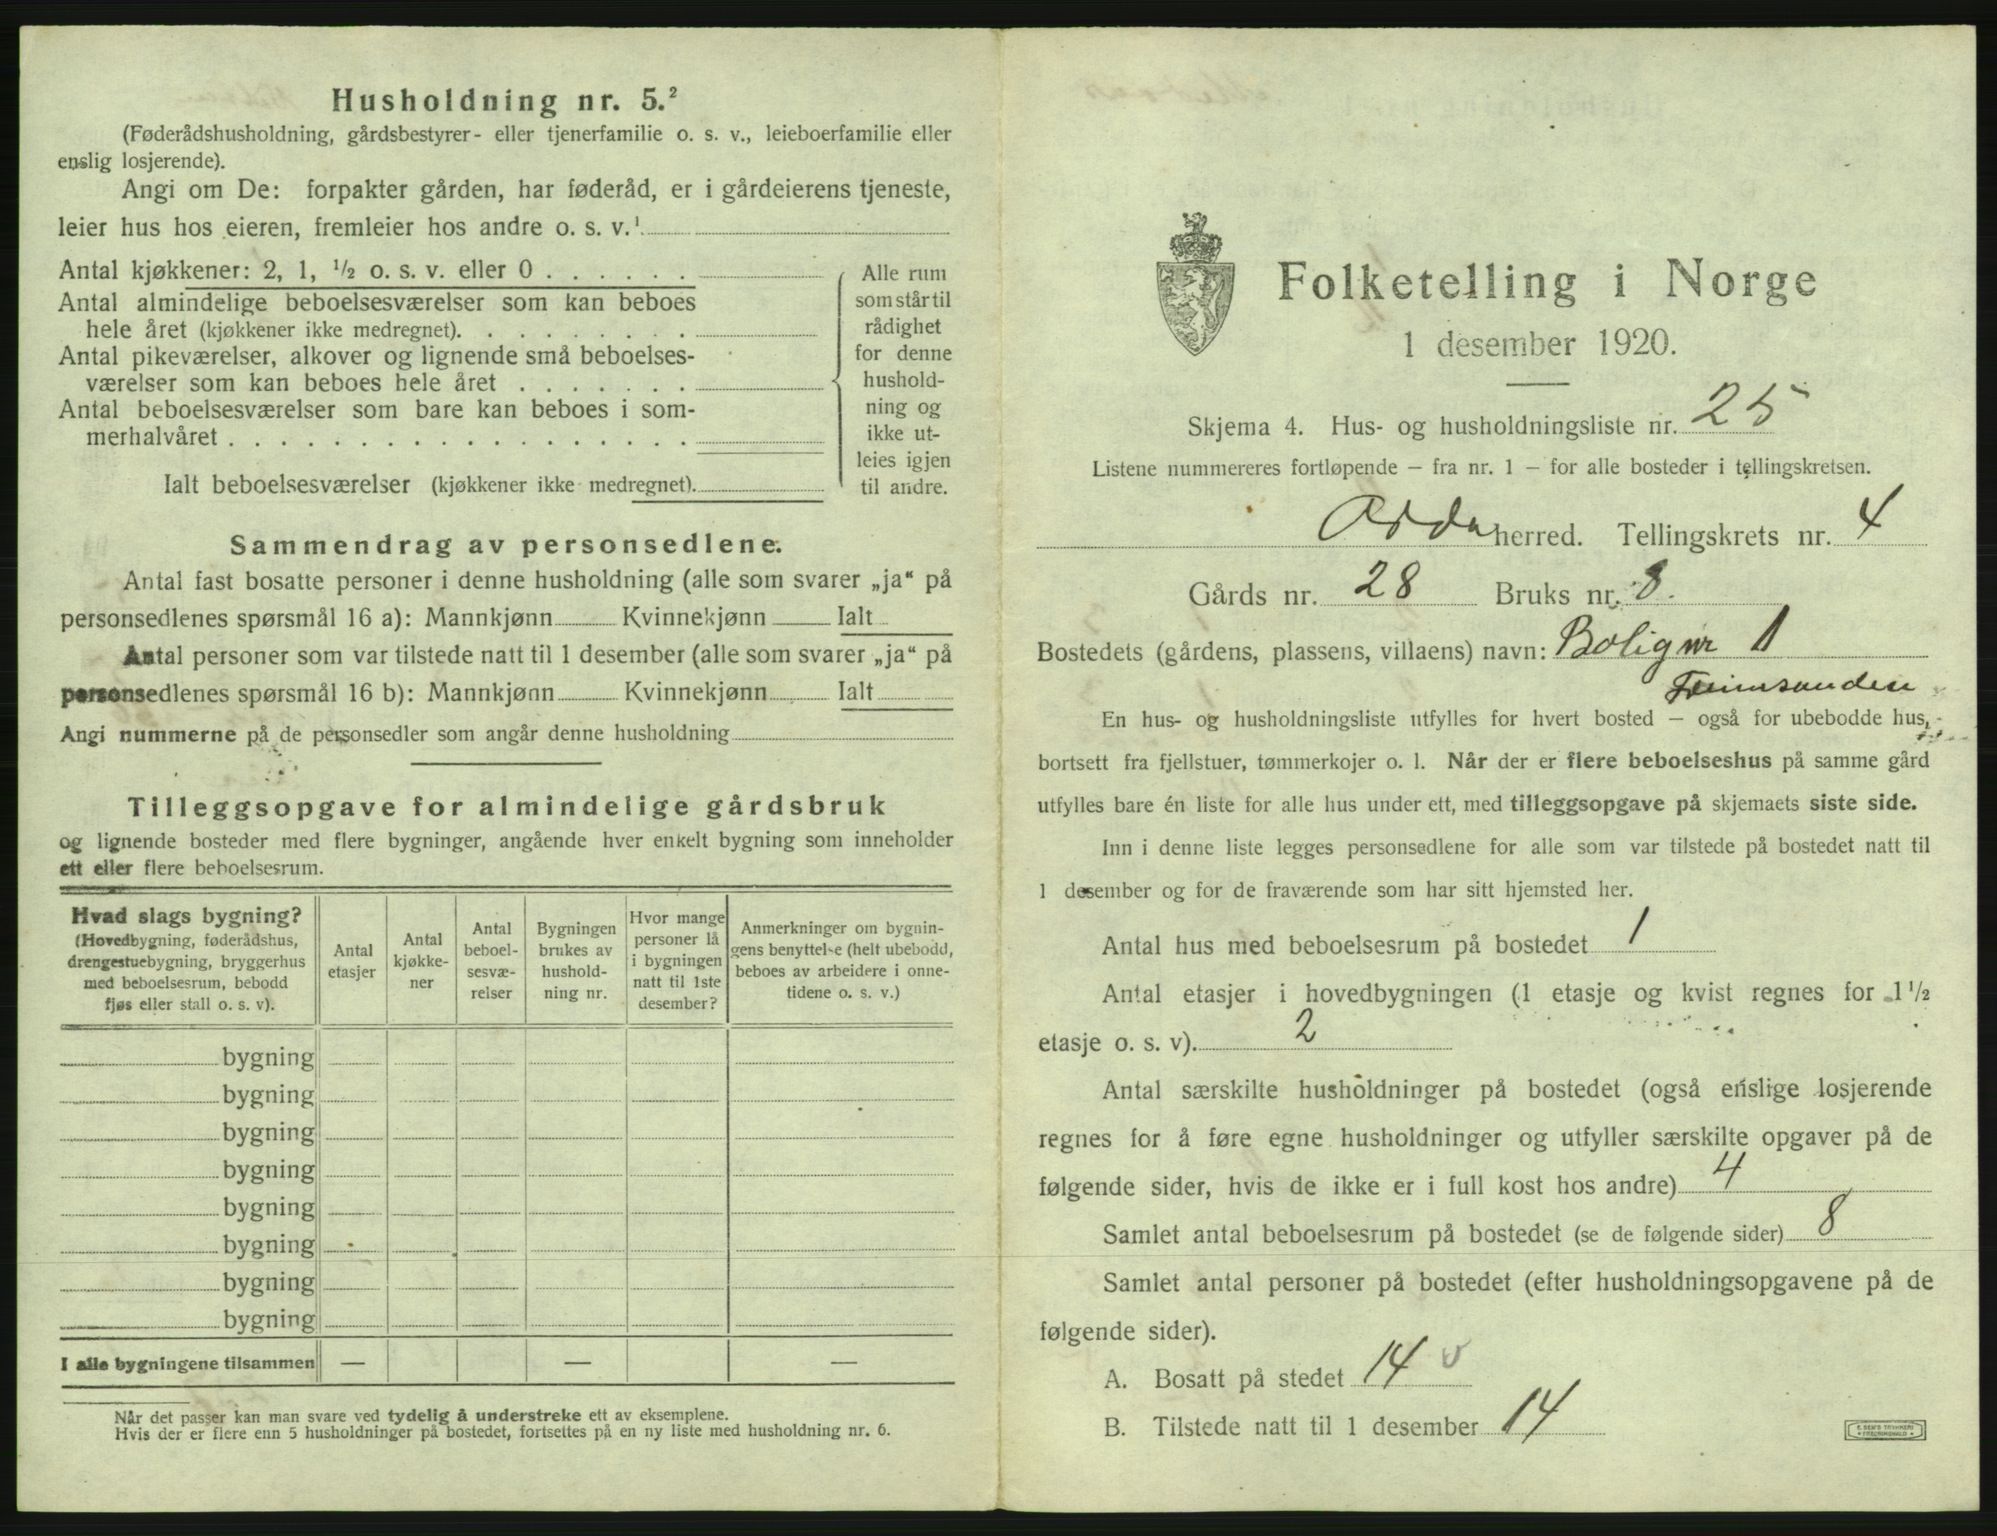 Husholdning nr. 5.²
(Føderådshusholdning, gårdsbestyrer- eller tjenerfamilie o. s. v., leieboerfamilie eller
enslig losjerende).
Angi om De: forpakter gården, har føderåd, er i gårdeierens tjeneste,
leier hus hos eieren, fremleier hos andre o. s. v.¹
Antal kjøkkener: 2, 1, ½ o. s. v. eller 0 . . . . . .
Antal almindelige beboelsesværelser som kan beboes
hele året (kjøkkener ikke medregnet). . . . . . . . .
Antal pikeværelser, alkover og lignende små beboelses-
værelser som kan beboes hele året . . . . . . .
Antal beboelsesværelser som bare kan beboes i som-
merhalvåret . . . . . . . . . . . . . . . . . .
Ialt beboelsesværelser (kjøkkener ikke medregnet).
Alle rum
som står til
rådighet
for denne
hushold-
ning og
ikke ut-
leies igjen
til andre.
Sammendrag av personsedlene.
Antal fast bosatte personer i denne husholdning (alle som svarer „ja“ på
personsedlenes spørsmål 16 a): Mannkjønn Kvinnekjønn Ialt
Antal personer som var tilstede natt til 1 desember (alle som svarer „ja“ på
personsedlenes spørsmål 16 b): Mannkjønn Kvinnekjønn Ialt
Angi nummerne på de personsedler som angår denne husholdning
Tilleggsopgave for almindelige gårdsbruk
og lignende bosteder med flere bygninger, angående hver enkelt bygning som inneholder
ett eller flere beboelsesrum.
Hvad slags bygning?
(Hovedbygning, føderådshus,
drengestuebygning, bryggerhus
med beboelsesrum, bebodd
fjøs eller stall o. s. v).
Antal
etasjer
Antal
kjøkke-
ner
Antal
beboel-
sesvæ-
relser
Bygningen
brukes av
hushold-
ning nr.
Hvor mange
personer lå
i bygningen
natt til 1ste
desember?
Anmerkninger om bygnin-
gens benyttelse (helt ubebodd,
beboes av arbeidere i onne-
tidene o. s. v.)
bygning
bygning
bygning
bygning
bygning
bygning
bygning
bygning
I alle bygningene tilsammen — — —
Når det passer kan man svare ved tydelig å understreke ett av eksemplene.
Hvis der er flere enn 5 husholdninger på bostedet, fortsettes på en ny liste med husholdning nr. 6.
Folketelling i Norge
1 desember 1920.
Skjema 4. Hus- og husholdningsliste nr. 25
Listene nummereres fortløpende – fra nr. 1 – for alle bosteder i tellingskretsen.
Odda herred. Tellingskrets nr. 4
Gårds nr. 28 Bruks nr. 8.
Bostedets (gårdens, plassens, villaens) navn: Bolig nr 1
En hus- og husholdningsliste utfylles for hvert bosted – også for ubebodde hus,
bortsett fra fjellstuer, tømmerkojer o. l. Når der er flere beboelseshus på samme gård
utfylles bare én liste for alle hus under ett, med tilleggsopgave på skjemaets siste side.
Inn i denne liste legges personsedlene for alle som var tilstede på bostedet natt til
1 desember og for de fraværende som har sitt hjemsted her.
Antal hus med beboelsesrum på bostedet 1
Antal etasjer i hovedbygningen (1 etasje og kvist regnes for 1½
etasje o. s. v). 2
Antal særskilte husholdninger på bostedet (også enslige losjerende
regnes for å føre egne husholdninger og utfyller særskilte opgaver på de
følgende sider, hvis de ikke er i full kost hos andre) 4
Samlet antal beboelsesrum på bostedet (se de følgende sider) 8
Samlet antal personer på bostedet (efter husholdningsopgavene på de
følgende sider).
A. Bosatt på stedet 14
B. Tilstede natt til 1 desember 14